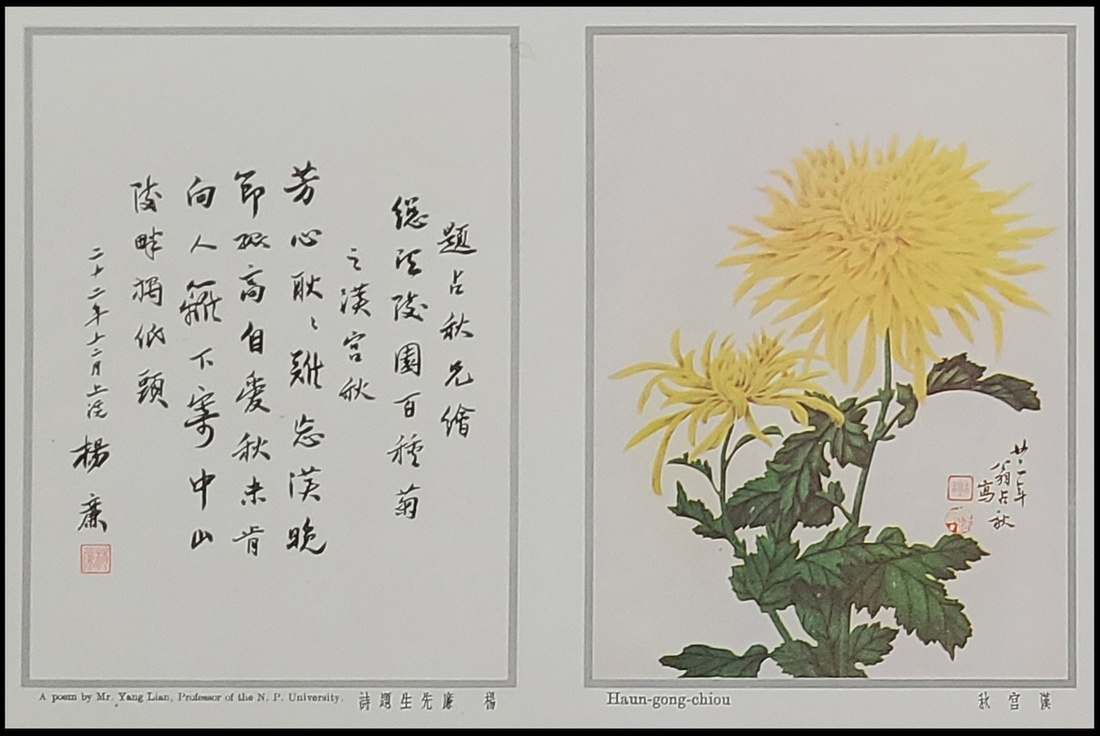 題占秋兄繪
總理陵園百種菊
之漢宮秋
芳心耿〻難忘漢晚
節孤高自愛秋未肯
向人籬下寄中山
陵畔獨低頭
二十二年十二月上浣 楊廉
A poem by Mr. Yang Lian, Professor of the N. P. University.
楊廉先生題詩
翁占秋
寫
Haun-gong-chiou
漢宮秋